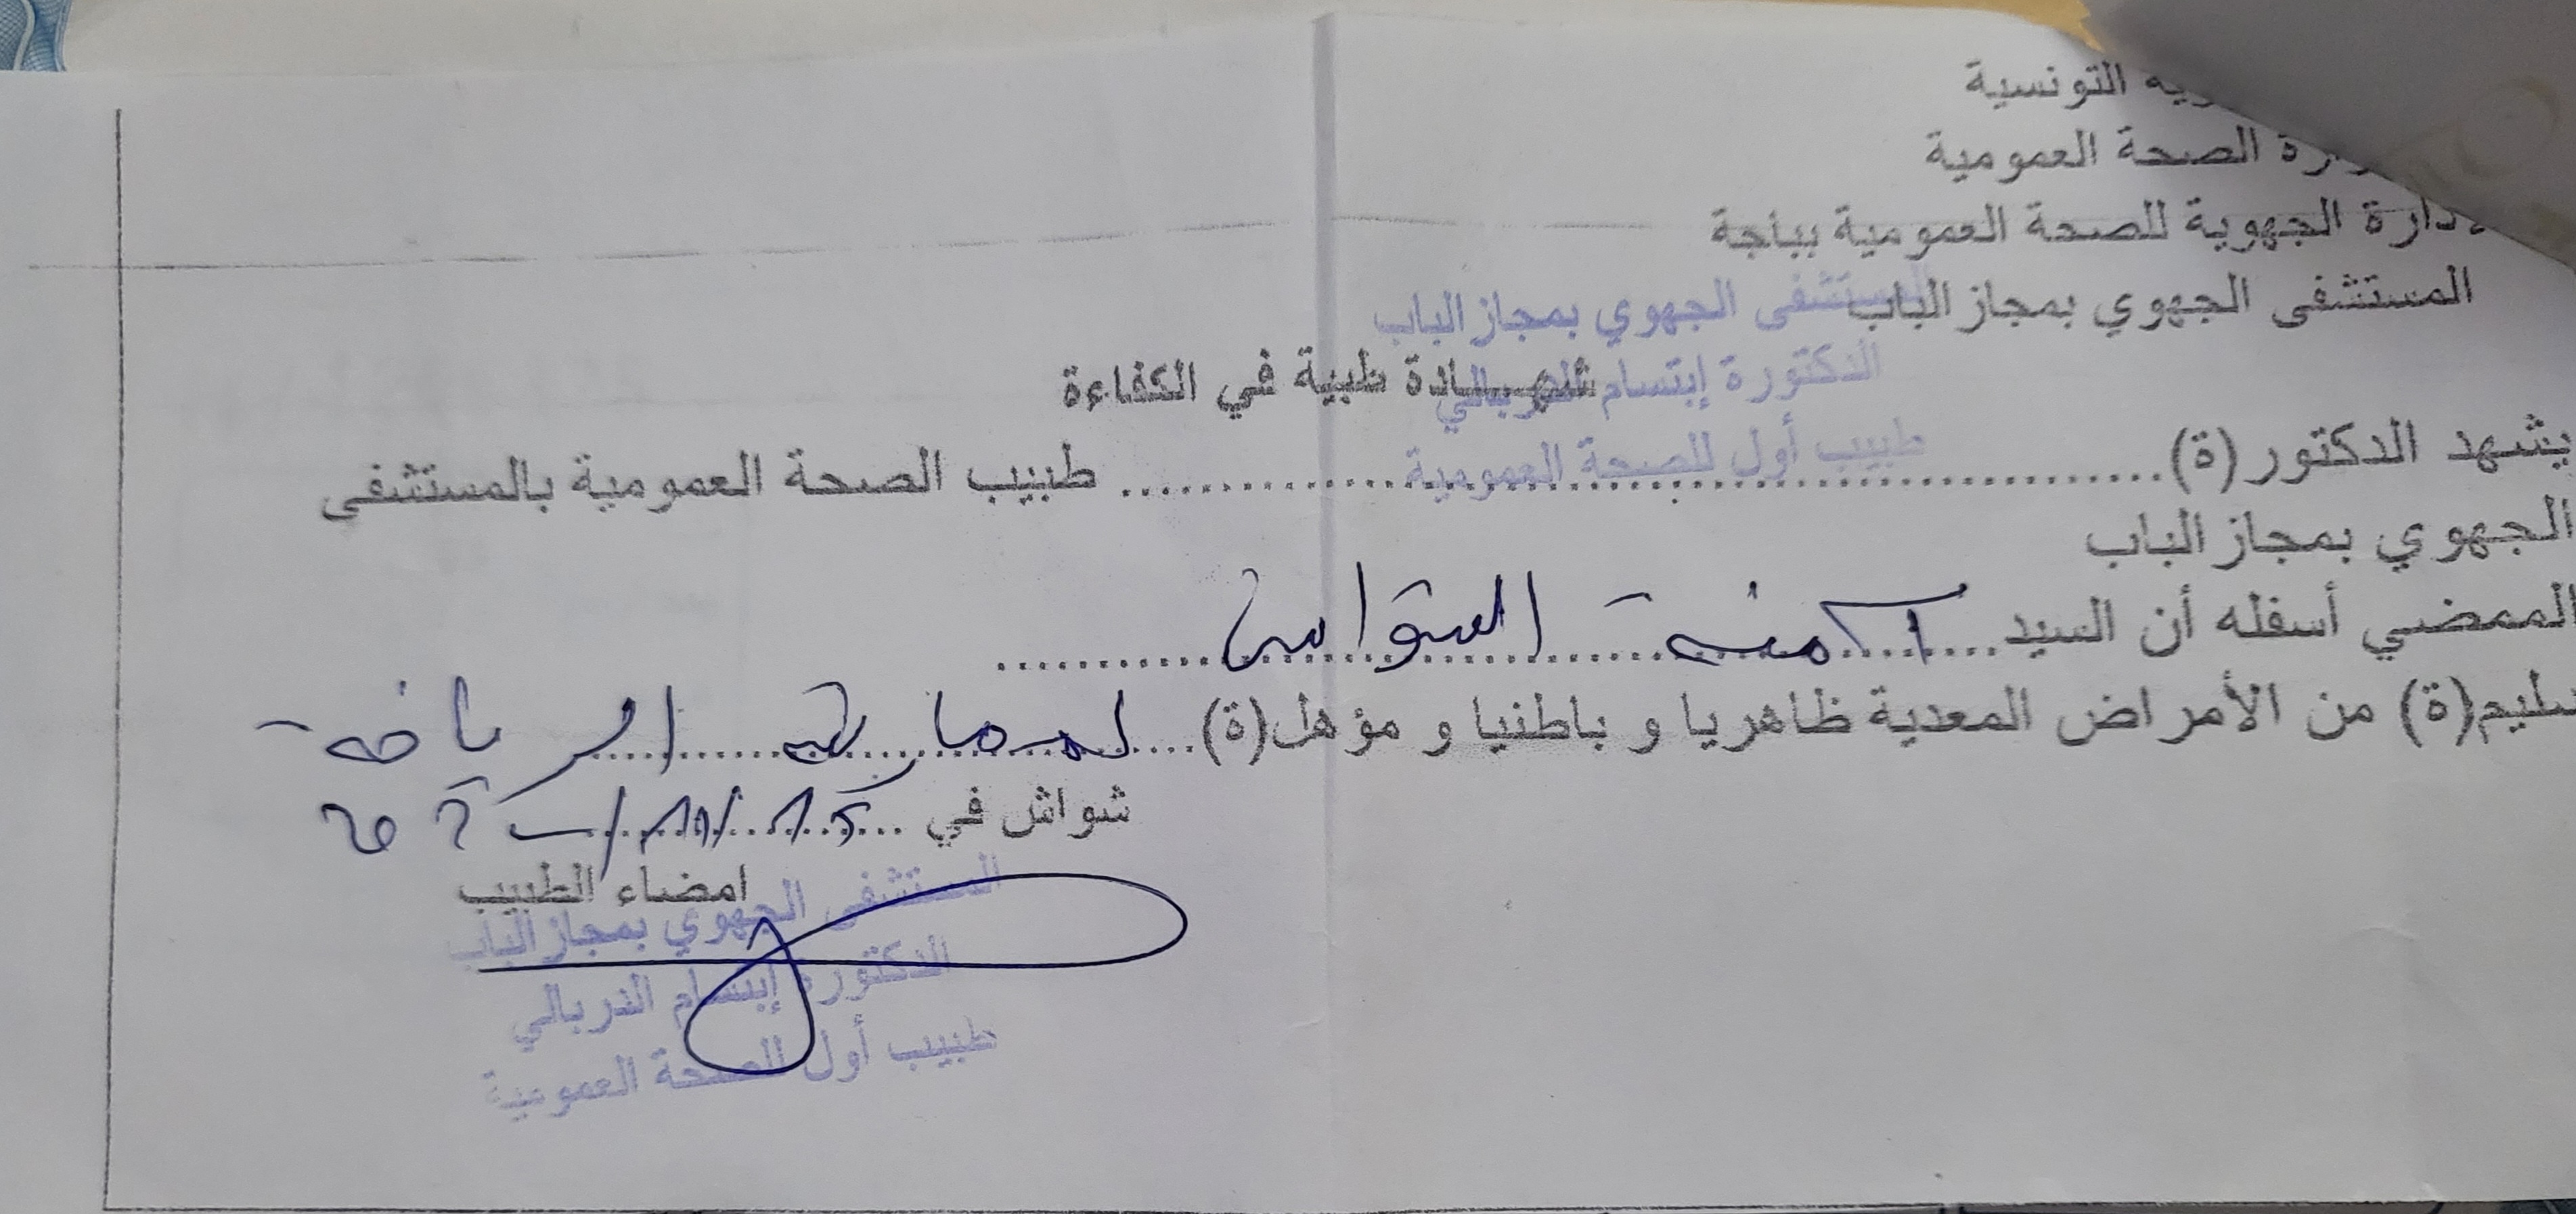 التونسية
الصحة العمومية
الجهوية للصحة العمومية بباجة
المستشفى الجهوي بمجاز الباب
المستشفى الجهوي بمجاز الباب
الدكتورة إبتسام الدربالي
شهادة طبية في الكفاءة
طبيب أول للصحة العمومية
يشهد الدكتور (ة) طبيب الصحة العمومية بالمستشفى
الجهوي بمجاز الباب
الممضي أسفله أن السيد آمنة السواسي
سليم(ة) من الأمراض المعدية ظاهريا و باطنيا و مؤهل(ة) لممارسة الرياضة
شواش في
امضاء الطبيب
المستشفى الجهوي بمجاز الباب
الدكتورة إبتسام الدربالي
طبيب أول للصحة العمومية